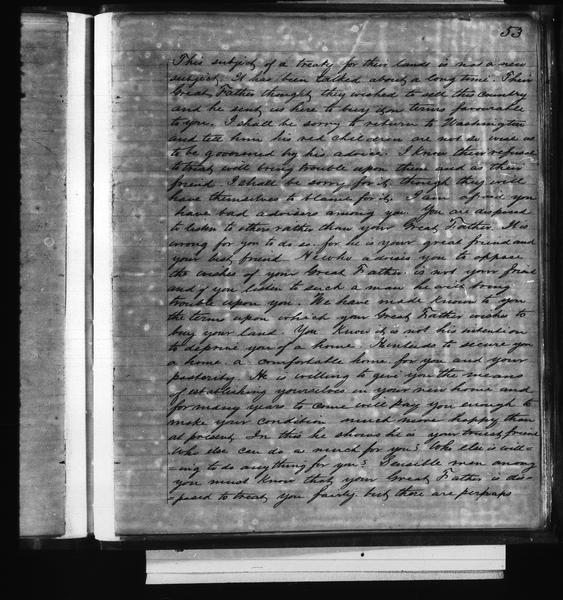 53
This subject of a treaty for their lands is not a new
subject. It has been talked about a long time. Their
Great Father thought they wished to sell this country
and he sent us here to buy upon terms favourable
to you. I shall be sorry to return to Washington
and tell him his red children are not so wise as
to be governed by his advice. I know their refusal
to treat will bring trouble upon them and as their
friend I shall be sorry for it, though they will
have themselves to blame for it. I am afraid you
have bad advisers among you. You are disposed
to listen to others rather than your Great Father. It is
wrong for you to do so, for he is your great friend and
your best friend. He who advises you to oppose
the wishes of your Great Father, is not your friend
and if you listen to such a man he will bring
trouble upon you. We have made known to you
the terms upon which your Great Father wishes to
buy your land. You know it is not his intention
to deprive you of a home. He intends to secure you
a home, a comfortable home for you and your
posterity. He is willing to give you the means
of establishing yourselves in your new home and
for many years to come will pay you enough to
make your condition much more happy than
at present. In this he shows he is your truest friend
Who else can do as much for you? Who else is will-
-ing to do anything for you? Sensible men among
you must know that your Great Father is dis-
-posed to treat you fairly. but there are perhaps